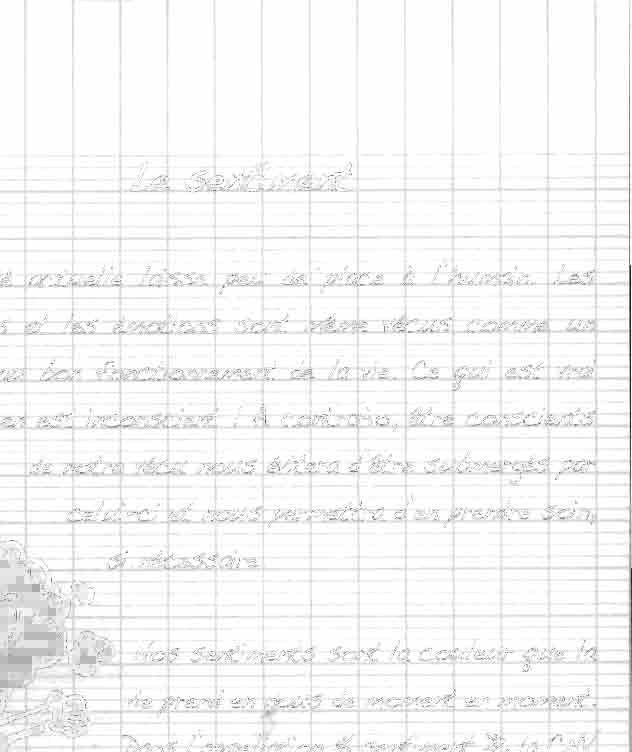 Le sentiment
actuelle laisse peu de place à l'humain. Les
et les émotions sont même vécus comme un
bon fonctionnement de la vie. Ce qui est mal
est inconscient ! A contrario, être conscients
de notre vécu nous évitera d'être submergés par
celui-ci et nous permettra d'en prendre soin,
si nécessaire.
Nos sentiments sont la couleur que la
vie prend en nous de moment en moment.
Dans l'